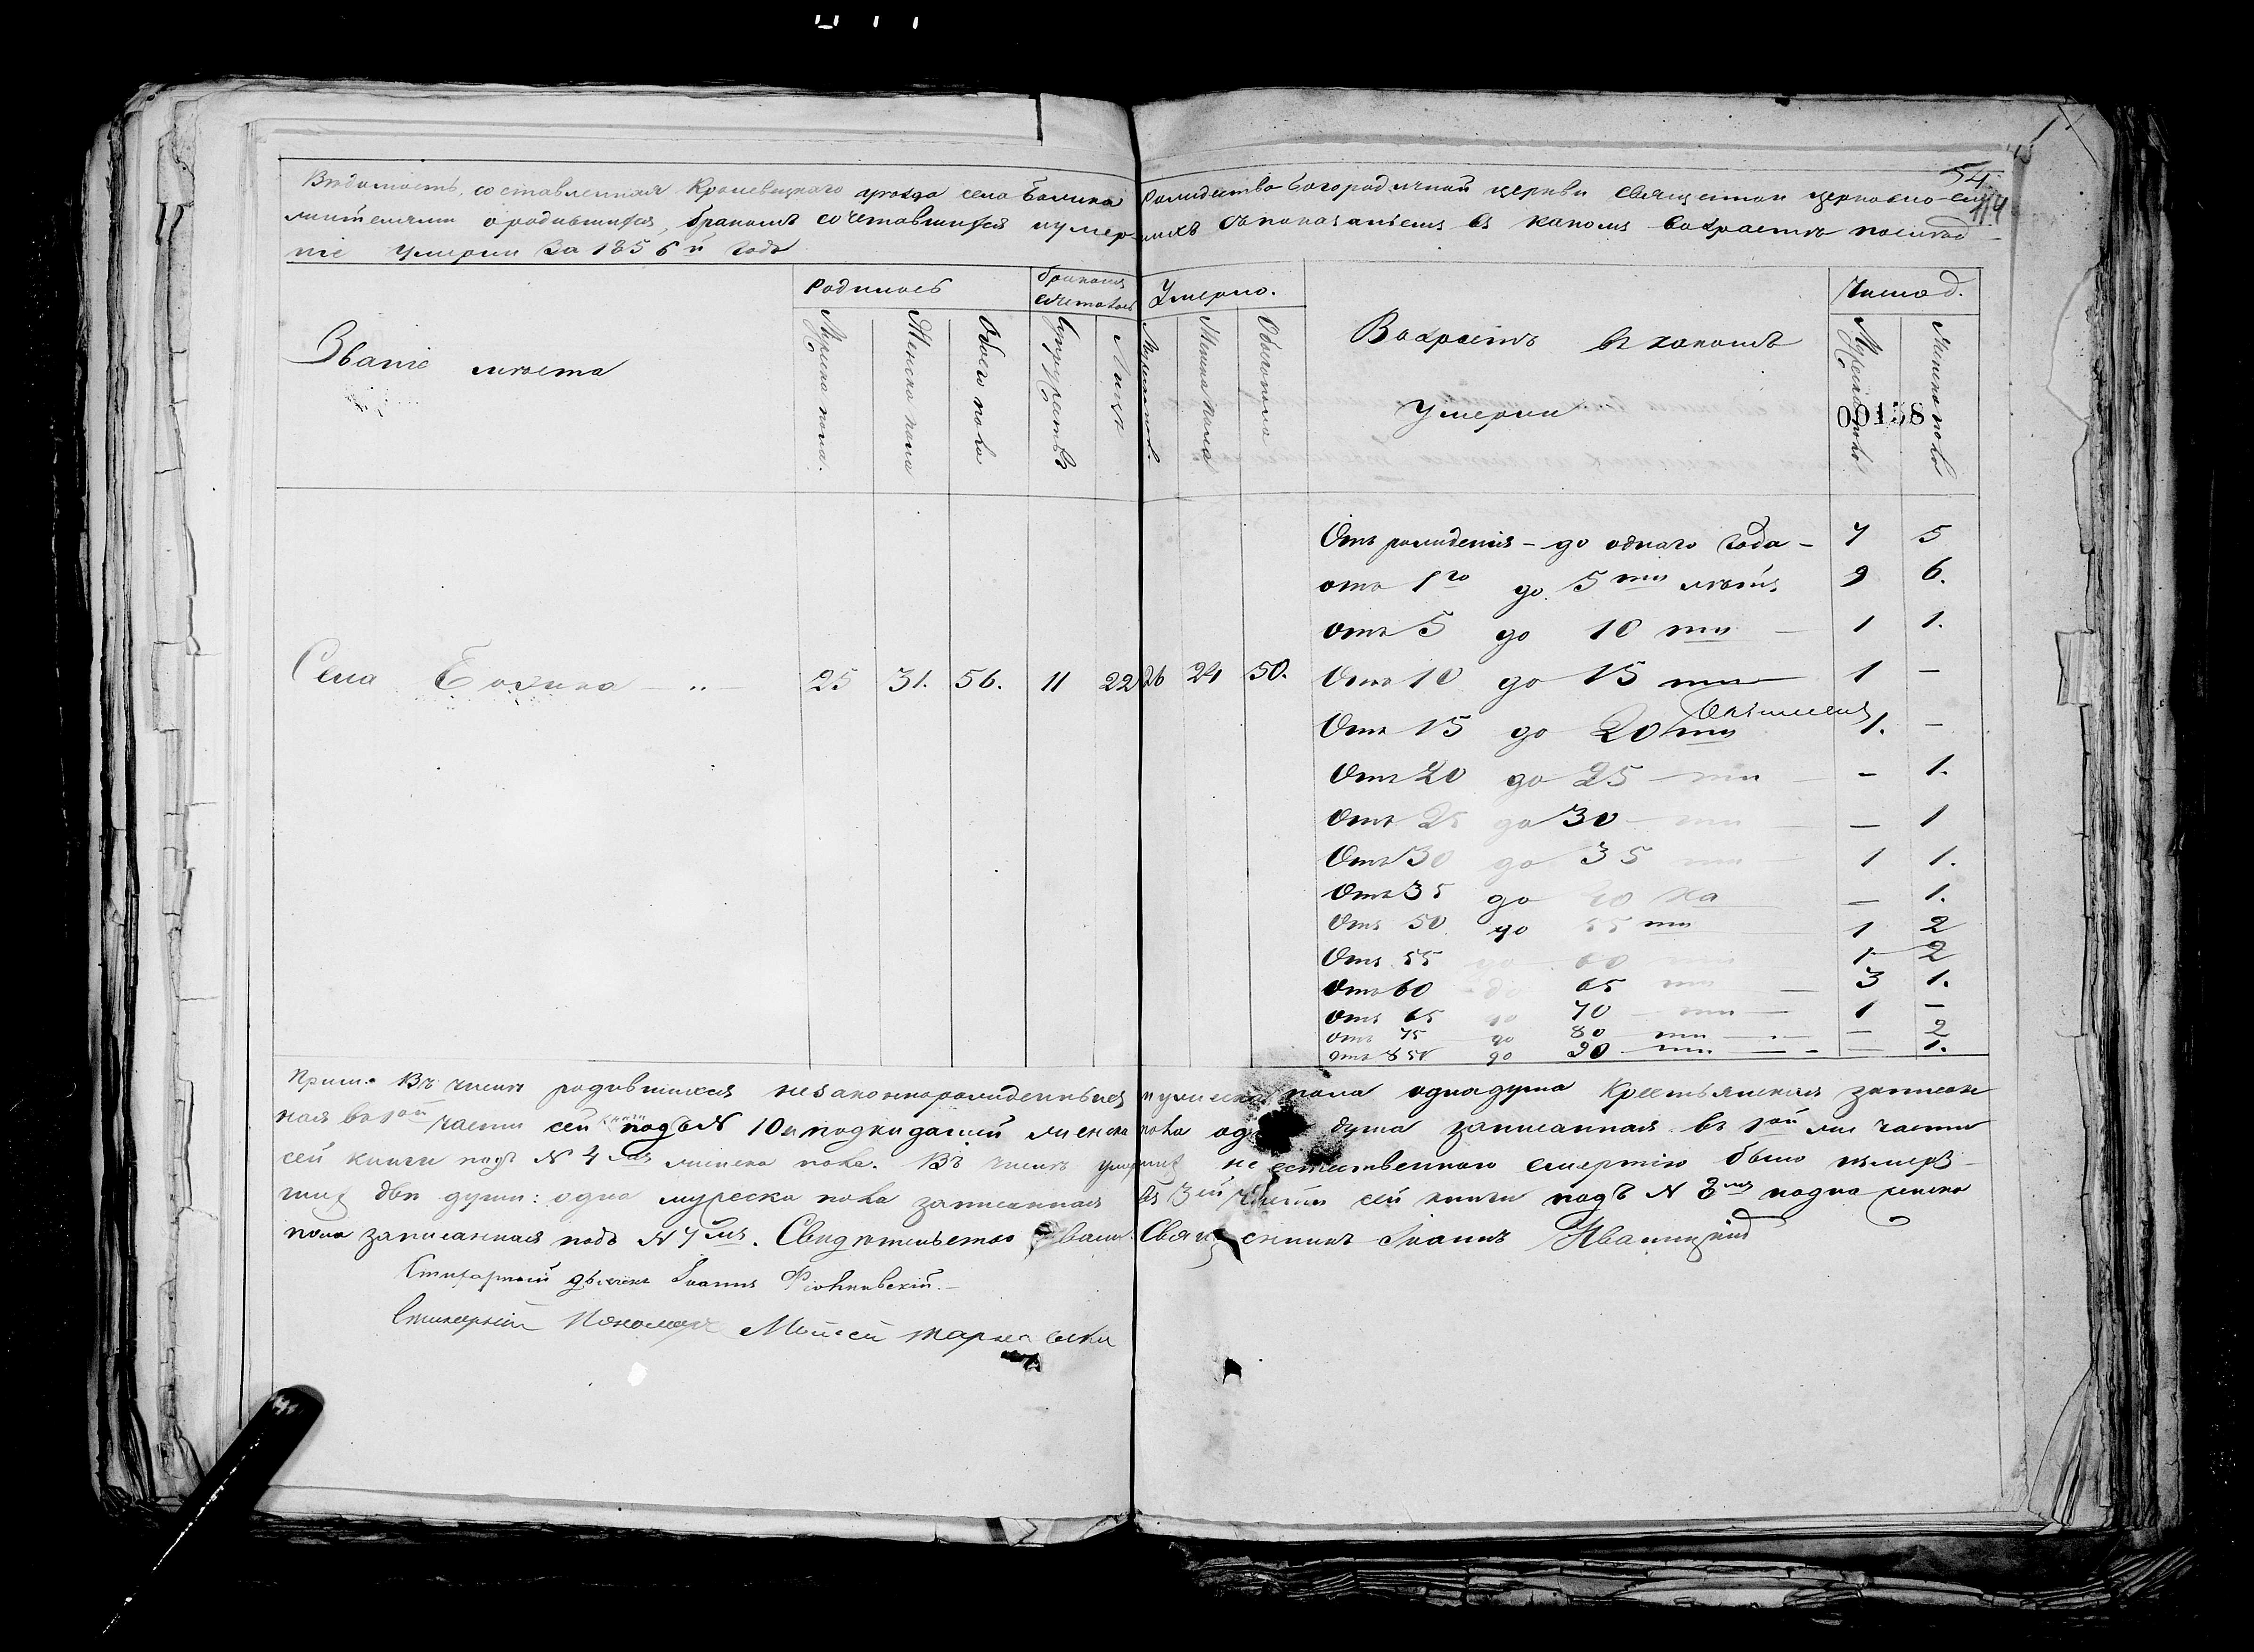 54
114
Вѣдомость, составленная Кролевецкаго уѣзда села Божика Рождество Богородичной церкви священно церковно-слу
жителями о родившихся, бракомъ сочетавшихся и умер-шихъ съ показаніемъ въ какомъ возрастѣ послѣд-
ніе умерли за 1856й годъ
Званіе мѣста
Родилось
Бракомъ сочеталось
Умерло.
Возрастъ въ какомъ
умерли
Число д.
Мужеска пола.
Женска пола
Обоего пола
Супружествъ
Лицъ
Мужеска пола.
Женска пола
Обоего пола
Мужеска пола
Женска пола
00158
Отъ рожденія - до однаго года - 7 5
отъ 1го до 5ти лѣтъ 9 6.
отъ 5 до 10 ти - 1 1.
Села 25 31. 56. 11 22 26 24 50.
Отъ 10 до 15 ти 1 -
Отъ 15 до 20 ти 1. -
Отъ 20 до 25 - ти - - 1.
Отъ 25 до 30 - ти - - 1
Отъ 30 до 35 ти 1 1.
Отъ 35 до 40 ка - 1.
Отъ 50 до 55 ти 1 2
Отъ 55 до 60 ти 1 2
Отъ 60 до 65 ти - 3 1.
Отъ 65 до 70 - ти - 1 -
Отъ 75 до 80 ти - - 2
Отъ 85 до 90 - ти - - 1.
Прим. Въ числѣ родившихся незаконнорожденныхъ мужеска пола одна душа Крестьянская записан
ная въ 1ой части сей книги подъ N 10 и подкидышей женска пола душа записанная въ 1ой же части
сей книги подъ N 4 женска пола. Въ числѣ умершихъ не естественною смертію было умерв-
шихъ двѣ души: одна мужеска пола записанная въ 3ей части сей книги подъ N 8 и одна женска
пола записанная подъ N 7. Свидѣтельство Священникъ Іоаннъ Иваницкій
Стихарный дьячекъ Іоаннъ
Стихарный Пономарь Мойсей